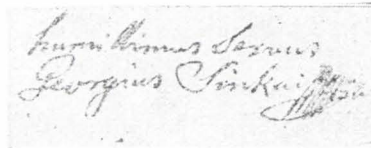 humillimus Servus
Georgius Sinkai